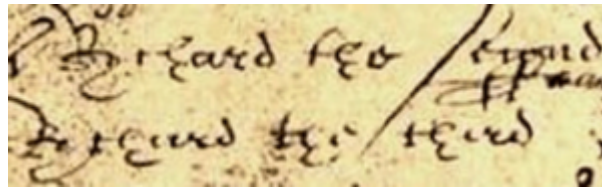 Richard the second
Richard the third